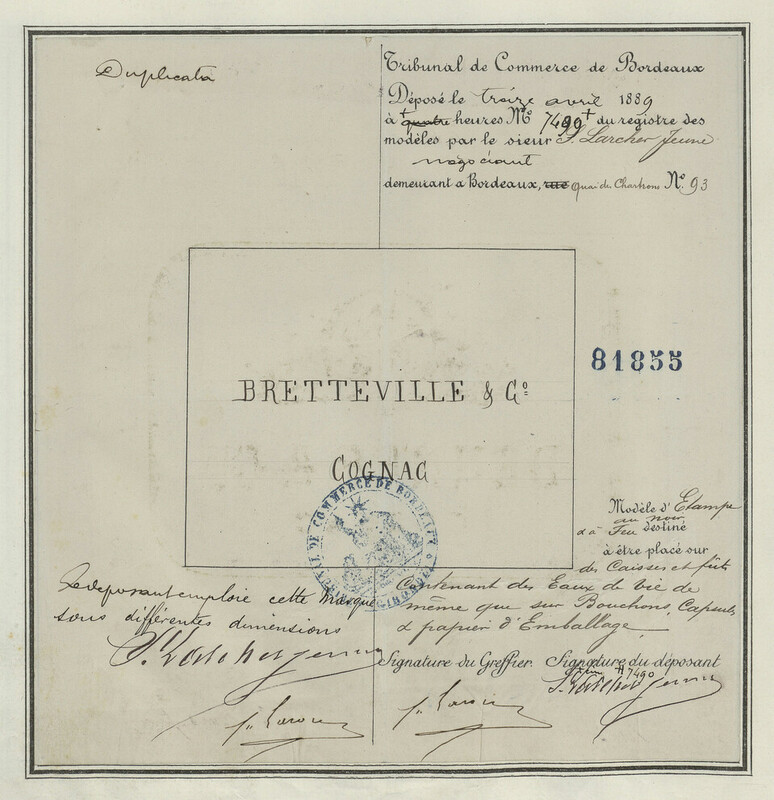 Duplicata
Tribunal de Commerce de Bordeaux
Déposé le treize avril 1889
à quatre heures No 7490 du registre des
modèles par le sieur S. Larcher Jeune
négociant
demeurant à Bordeaux, rue Quai des Chartrons No. 93
BRETTEVILLE & Co
COGNAC
81855
TRIBUNAL DE COMMERCE DE BORDEAUX
GIRONDE
Modèle d'Etampe
au noir
& à Feu destiné
à être placé sur
des Caisses et fûts
Contenant des Eaux de vie de
même que sur Bouchons, Capsules
& papier d'Emballage
Le deposant emploie cette Marque
sous différentes dimensions
S. Larcher Jeune
Signature du Greffier. Signature du déposant
7490
S. Larcher Jeune